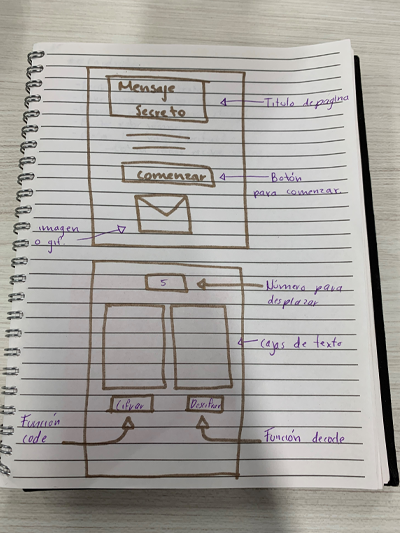 Mensaje
Secreto
Titulo de pagina
Comenzar
Botón
para comenzar.
imagen
o gif.
5
Número para
desplazar
cajas de texto
Cifrar
Descifrar
Función
code
Función decode